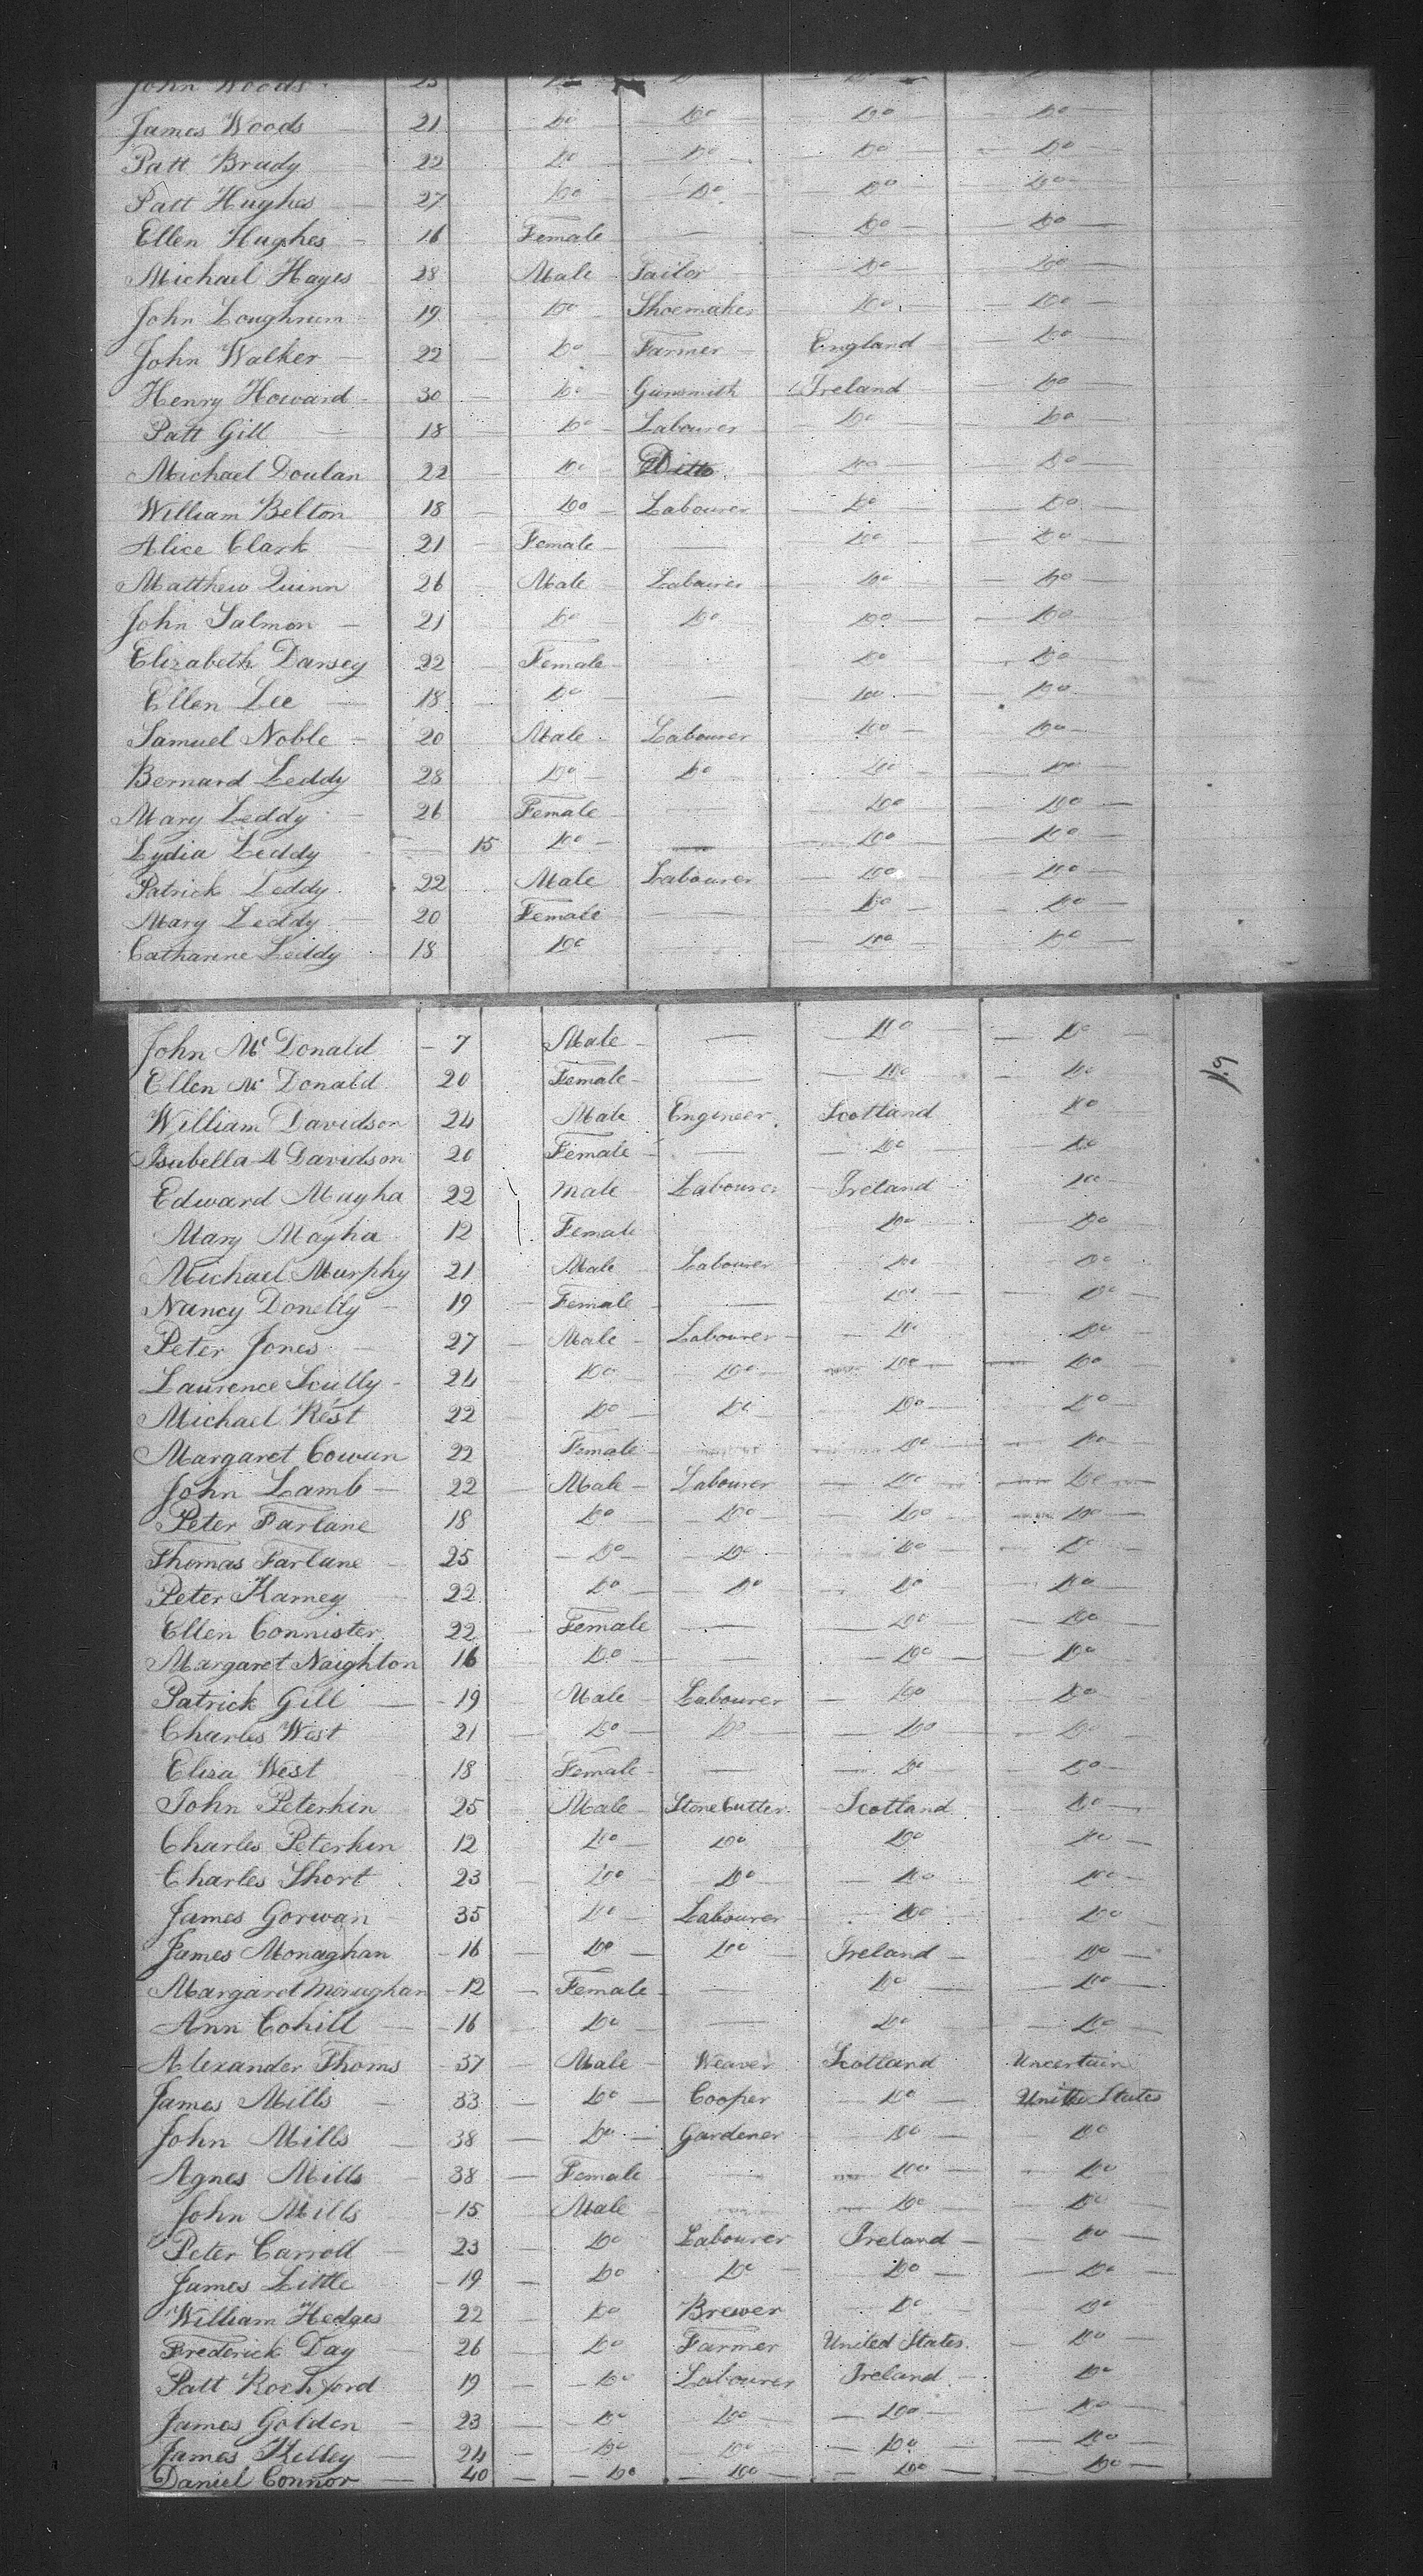 John Woods 25 Do Do Do Do
James Woods 21 Do Do Do Do
Patt Brady 22 Do Do Do Do
Patt Hughes 27 Do Do Do Do
Ellen Hughes 16 Female — Do Do
Michael Hayes 28 Male Tailor Do Do
John Loughrum 19 Do Shoemaker Do Do
John Walker 22 Do Farmer England Do
Henry Howard 30 Do Gunsmith Ireland Do
Patt Gill 18 Do Labourer Do Do
Michael Doulan 22 Do Ditto Do Do
William Belton 18 Do Labourer Do Do
Alice Clark 21 Female — Do Do
Matthew Quinn 26 Male Labourer Do Do
John Salmon 21 Do Do Do Do
Elizabeth Darsey 22 Female Do Do
Ellen Lee 18 Do — Do Do
Samuel Noble 20 Male Labourer Do Do
Bernard Leddy 28 Do Do Do Do
Mary Leddy 26 Female — Do Do
Lydia Leddy — 15 Do — Do Do
Patrick Leddy 22 Male Labourer Do Do
Mary Leddy 20 Female — Do Do
Catharine Leddy 18 Do — Do Do
John Mc Donald 7 Male — Do Do
Ellen Mc Donald 20 Female — Do Do
William Davidson 24 Male Engineer Scotland Do
Isabella A Davidson 20 Female — Do Do
Edward Mayha 22 Male Labourer Ireland Do
Mary Mayha 12 Female Do Do
Michael Murphy 21 Male Labourer Do Do
Nancy Donelly 19 Female — Do Do
Peter Jones 27 Male Labourer Do Do
Laurence Scully 24 Do Do Do Do
Michael Rest 22 Do Do Do Do
Margaret Cowan 22 Female — Do Do
John Lamb 22 Male Labourer Do Do
Peter Farlane 18 Do Do Do Do
Thomas Farlane 25 Do Do Do Do
Peter Karney 22 Do Do Do Do
Ellen Connister 22 Female — Do Do
Margaret Naighton 16 Do — Do Do
Patrick Gill 19 Male Labourer Do Do
Charles West 21 Do Do Do Do
Eliza West 18 Female — Do Do
John Peterkin 25 Male Stone Cutter Scotland Do
Charles Peterkin 12 Do Do Do Do
Charles Short 23 Do Do Do Do
James Gorwan 35 Do Labourer Do Do
James Monaghan 16 Do Do Ireland Do
Margaret Monaghan 12 Female — Do Do
Ann Cohill 16 Do — Do Do
Alexander Thoms 37 Male Weaver Scotland Uncertain
James Mills 33 Do Cooper Do United States
John Mills 38 Do Gardener Do Do
Agnes Mills 38 Female — Do Do
John Mills 15 Male — Do Do
Peter Carroll 23 Do Labourer Ireland Do
James Little 19 Do Do Do Do
William Hedges 22 Do Brewer Do Do
Frederick Day 26 Do Farmer United States Do
Patt Rochford 19 Do Labourer Ireland Do
James Golden 23 Do Do Do Do
James Kelley 24 Do Do Do Do
Daniel Connor 40 Do Do Do Do